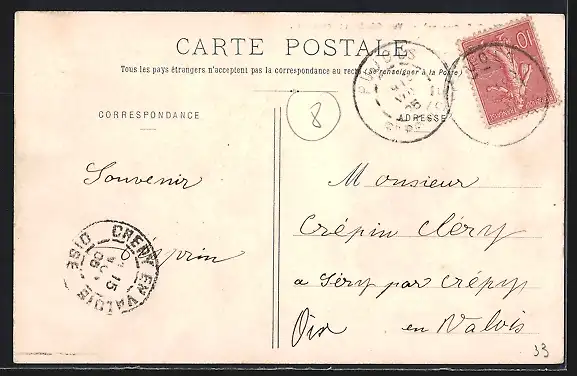 CARTE POSTALE
Tous les pays étrangers n'acceptent pas la correspondance au recto (Se renseigner à la Poste)
CORRESPONDANCE
ADRESSE
8
10
Souvenir
Monsieur
Crépin Cléry
a Séry par Crépy
en Valois
CREPY EN VALOIS
15
OISE
33